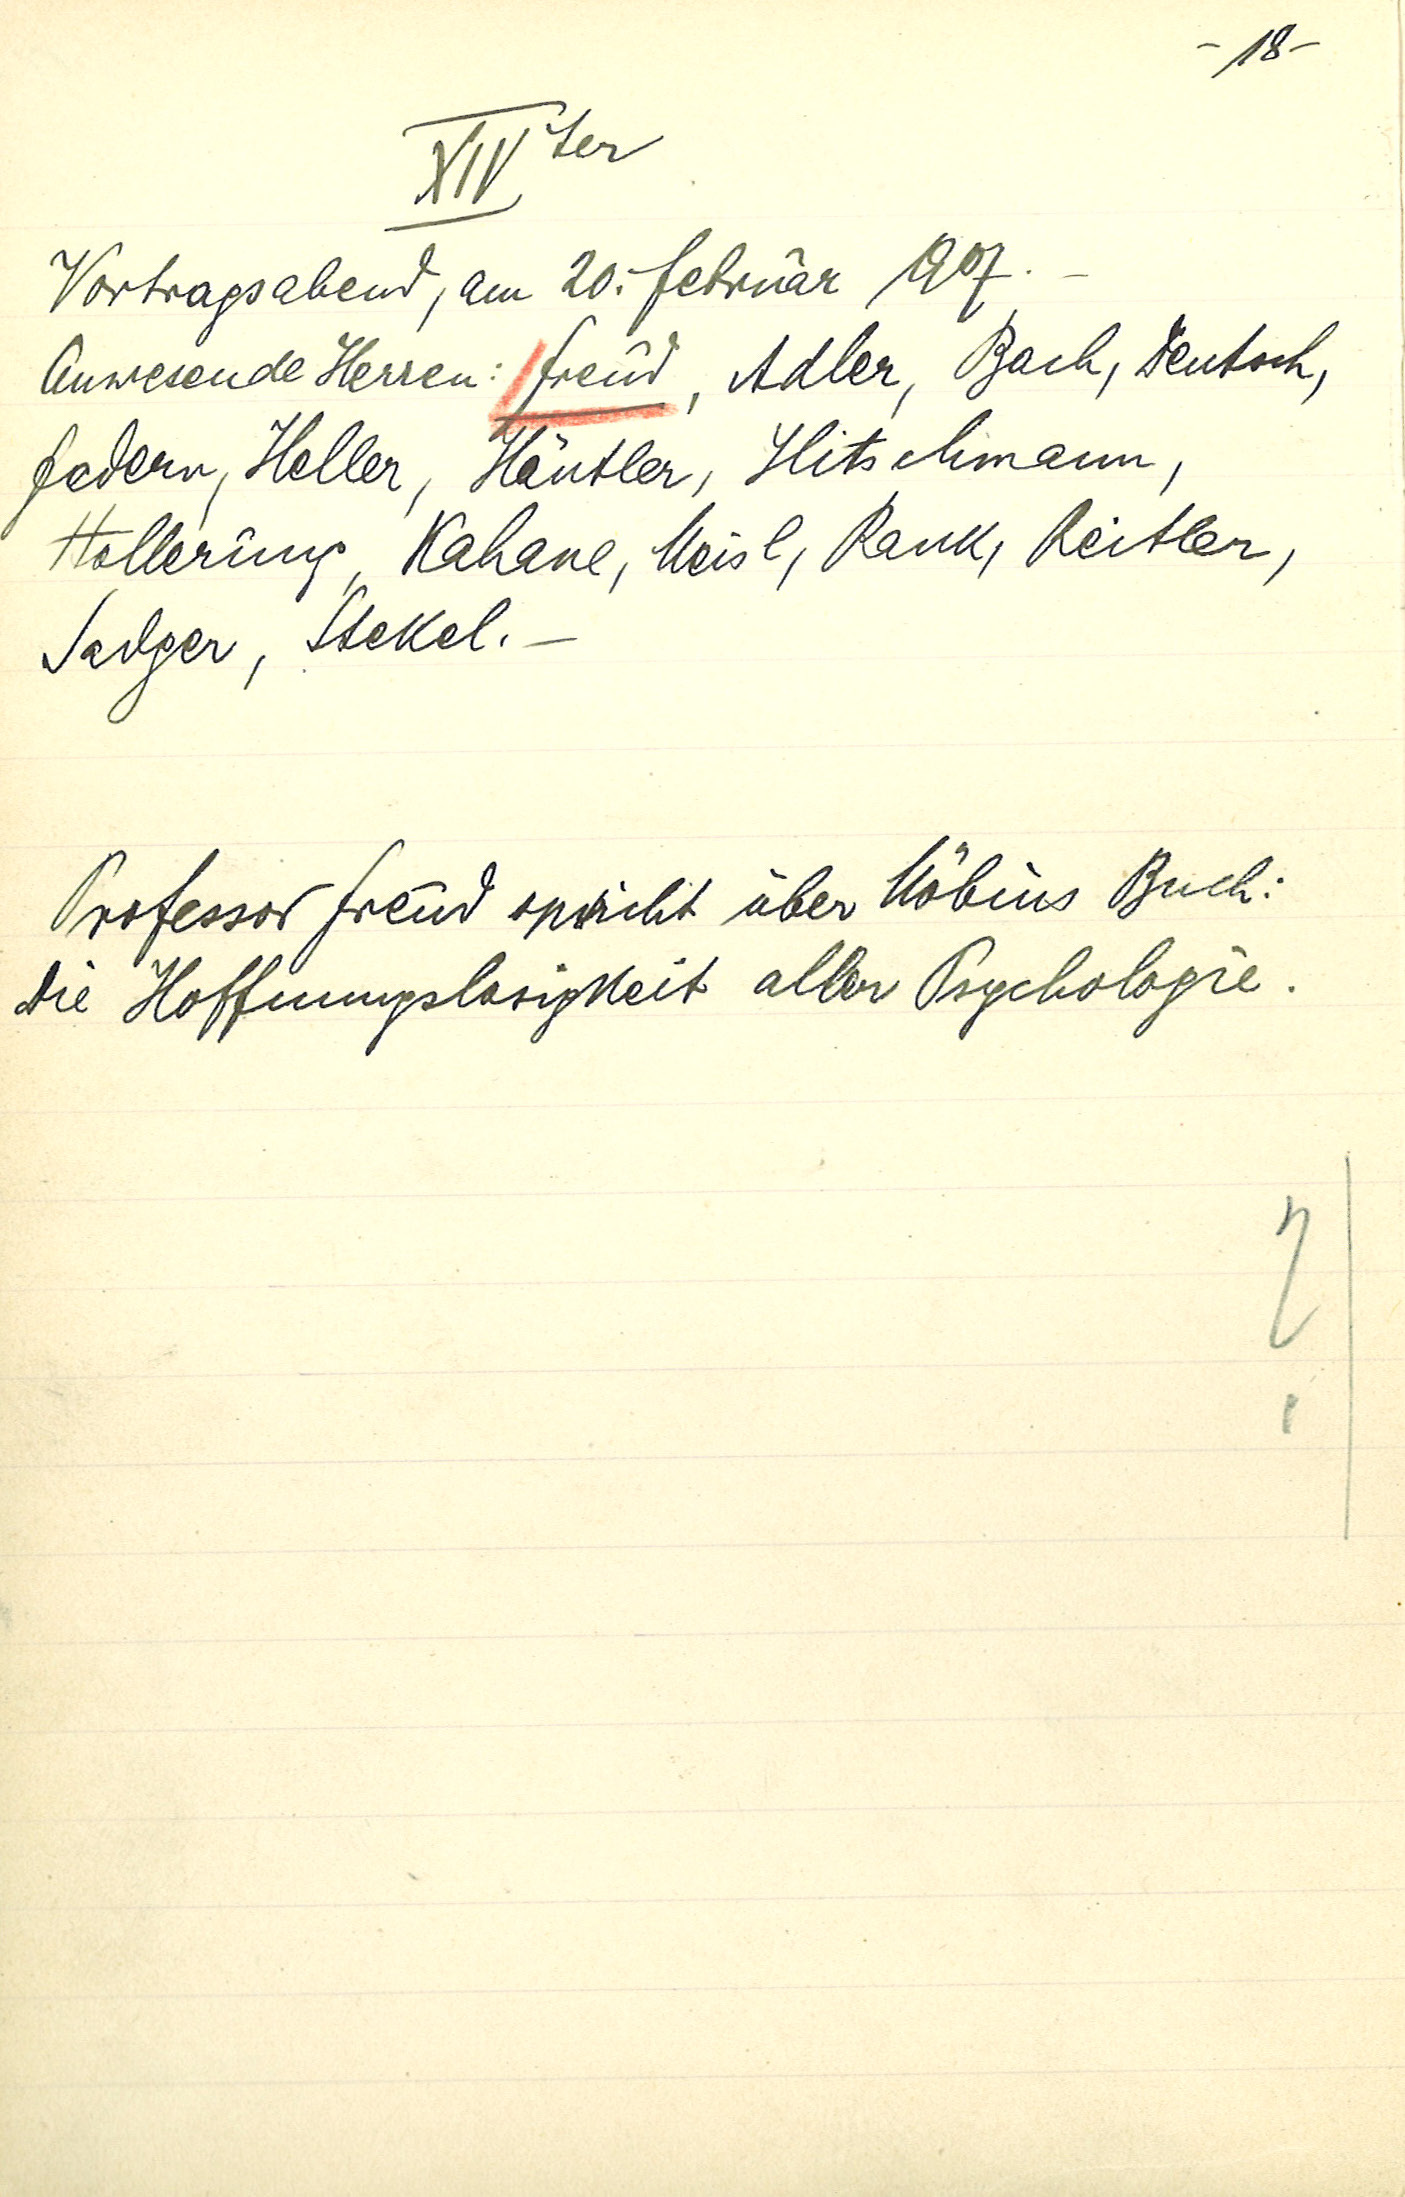 - 18 -
XIVter
Vortragsabend, am 20. Februar 1907. -
Anwesende Herren: Freud, Adler, Bach, Deutsch,
Federn, Heller, Häutler, Hitschmann,
Hollerung, Kahane, Meisl, Rank, Reitler,
Sadger, Stekel. -
Professor Freud spricht über Möbius Buch:
Die Hoffnungslosigkeit aller Psychologie.
?